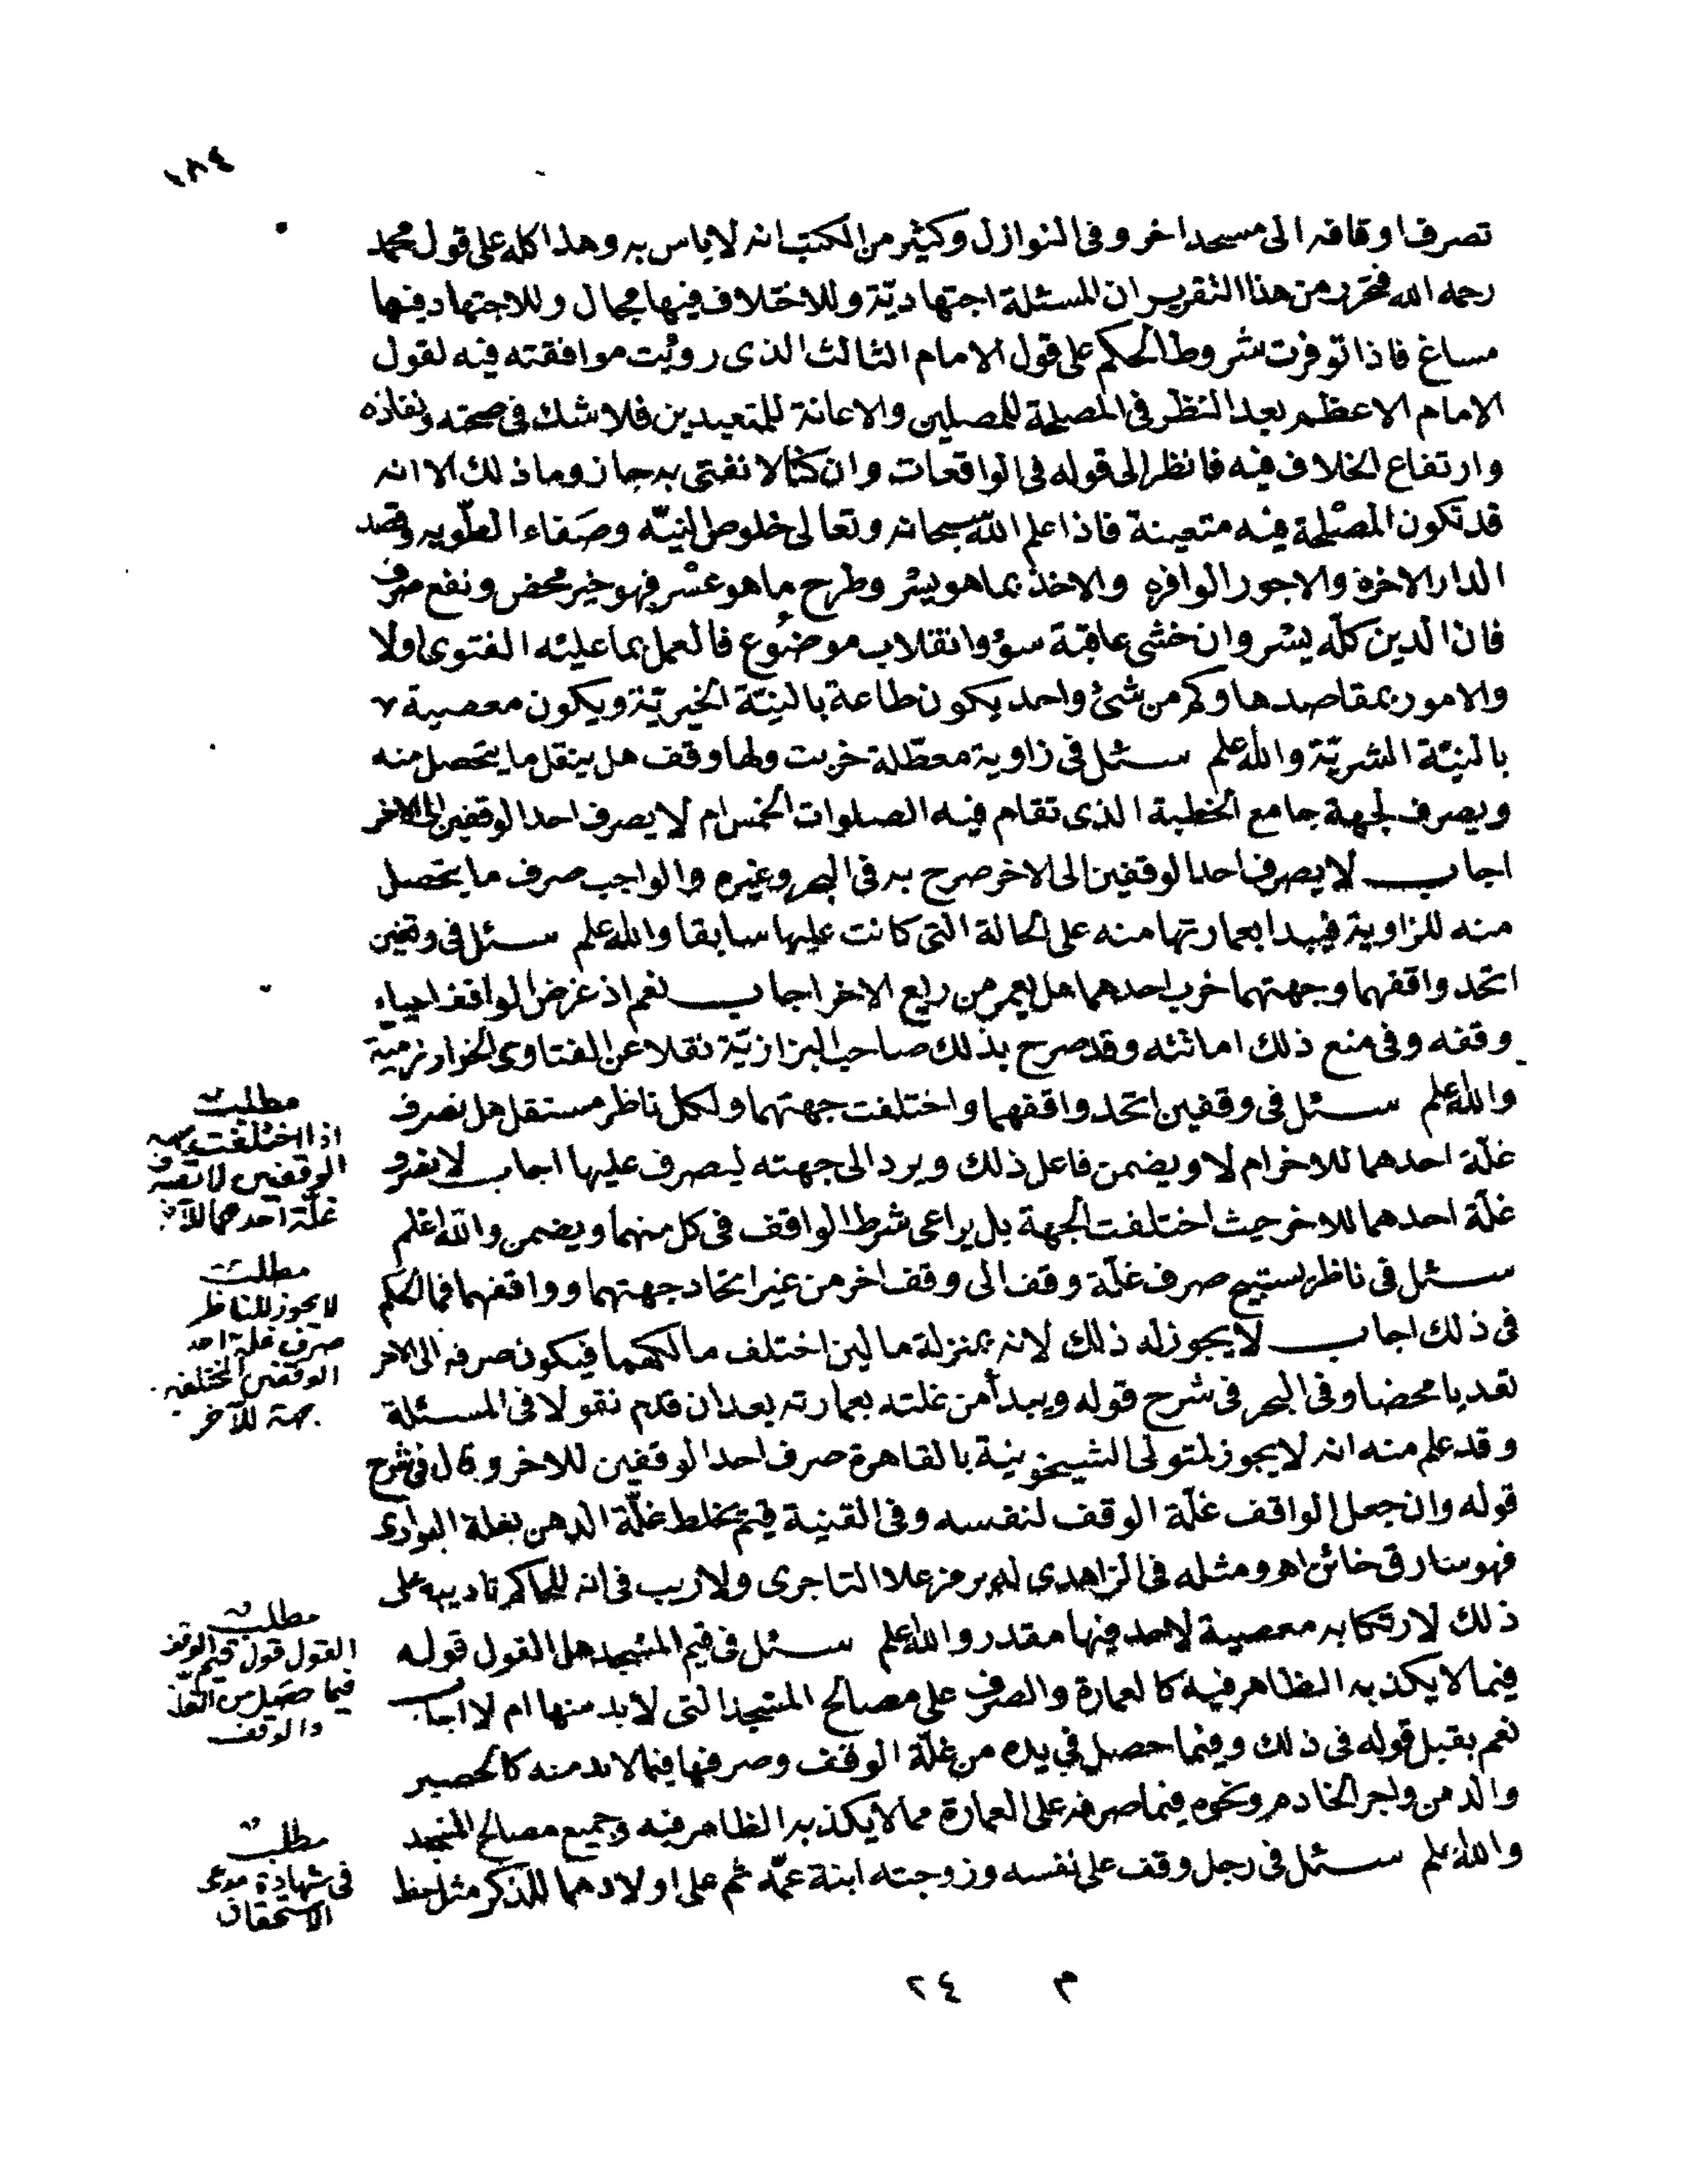 ١٨٤
تصرف اوقافه الى مسجد اخر وفى النوازل وكثير من الكتب انه لا باس به وهذا كله على قول محمد
رحمه الله فتحرر من هذا التقرير ان المسئلة اجتهاديّة وللاختلاف فيها مجال وللاجتهاد فيها
مساغ فاذا توفرت شروط الحكم على قول الامام الثالث الذى رويت موافقته فيه لقول
الامام الاعظم بعد النظر فى المصلحة للمصلين والاعانة للمتعبدين فلا شك فى صحته ونفاذه
وارتفاع الخلاف فيه فانظر الى قوله فى الواقعات وان كنا لا نفتى به جاز وما ذلك الا انه
قد تكون المصلحة فيه متعينة فاذا علم اللّه سبحانه وتعالى خلوص النيّه وصَفاء الطّويه وقصد
الدار الاخرة والاجور الوافره والاخذ بما هو يسر وطرح ما هو عسْر فهو خير محض ونفع صرف
فان الدين كلّه يسْر وان خشى عاقبة سؤ وانقلاب موضوع فالعمل بما عليْه الفتوى اولا
والامور بمقاصدها وكم من شئ واحد يكون طاعة بالنيّة الخيريّة ويكون معصية
بالنيّة الشريّة والله اعلم سئل فى زاوية معطّلة خربت ولها وقف هل ينقل ما يتحصل منه
ويصرف لجهة جامع الخطبة الذى تقام فيه الصلوات الخمس ام لا يصرف احد الوقفين الى الاخر
اجاب لا يصرف احد الوقفين الى الاخر صرح به فى البحر وغيره والواجب صرف ما يتحصل
منه للزاوية فيبدا بعمارتها منه على الحالة التى كانت عليها سابقا والله اعلم سئل فى وقفين
اتحد واقفهما وجهتهما خرب احدهما هل يعمر من ريع الاخر اجاب نعم اذ غرض الواقف احياء
وقفه وفى منع ذلك اماتته وقد صرح بذلك صاحب البزازيّة نقلا عن الفتاوى الخوارزمية
والله اعلم سئل فى وقفين اتحد واقفهما واختلفت جهتهما ولكل ناظر مستقل هل تصرف
غلّة احدهما للاخر ام لا ويضمن فاعل ذلك ويرد الى جهته ليصرف عليها اجاب لا تصرف
غلّة احدهما للاخر حيث اختلفت الجهة بل يراعى شرط الواقف فى كل منهما ويضمن والله اعلم
سئل فى ناظر يستبيح صرف غلّة وقف الى وقف اخر من غير اتحاد جهتهما وواقفهما فما الحكم
فى ذلك اجاب لا يجوز له ذلك لانه بمنزلة مالين اختلف مالكهما فيكون صرفه الى الاخر
تعديا محضا وفى البحر فى شرح قوله ويبدأ من غلته بعمارته بعد ان قدم نقولا فى المسئلة
وقد علم منه انه لا يجوز لمتولى الشيخونية بالقاهرة صرف احد الوقفين للاخر وقال فى شرح
قوله وان جعل الواقف غلّة الوقف لنفسه وفى القنية قيّم يخلط غلّة الدهن بغلة البوارى
فهو سارق خائن اهـ ومثله فى الزاهدى له برمز علاء التاجرى ولا ريب فى انه للحاكم تاديبه على
ذلك لارتكابه معصية لا حد فيها مقدر والله اعلم سئل فى قيم المسْجد هل القول قوله
فيما لا يكذبه الظاهر فيه كالعمارة والصرف على مصالح المسْجد التى لا بد منها ام لا اجاب
نعم يقبل قوله فى ذلك وفيما حصل فى يده من غلّة الوقف وصرفها فيما لا بد منه كالحصير
والدهن واجر الخادم ونحوه فيما صرفه على العمارة مما لا يكذبه الظاهر فيه وجميع مصالح المسجد
والله اعلم سئل فى رجل وقف على نفسه وزوجته ابنة عمّه ثم على اولادهما للذكر مثل حظ
مطلب
اذا اختلفت جهة
الوقفين لا تصرف
غلّة احدهما للآخر
مطلب
لا يجوز للناظر
صرف غلة احد
الوقفين المختلفة
جهة للآخر
مطلب
القول قول قيم الوقف
فيما حصل من الغلة
والوقف
مطلب
فى شهادة مدعى
الاستحقاق
م ٢٤